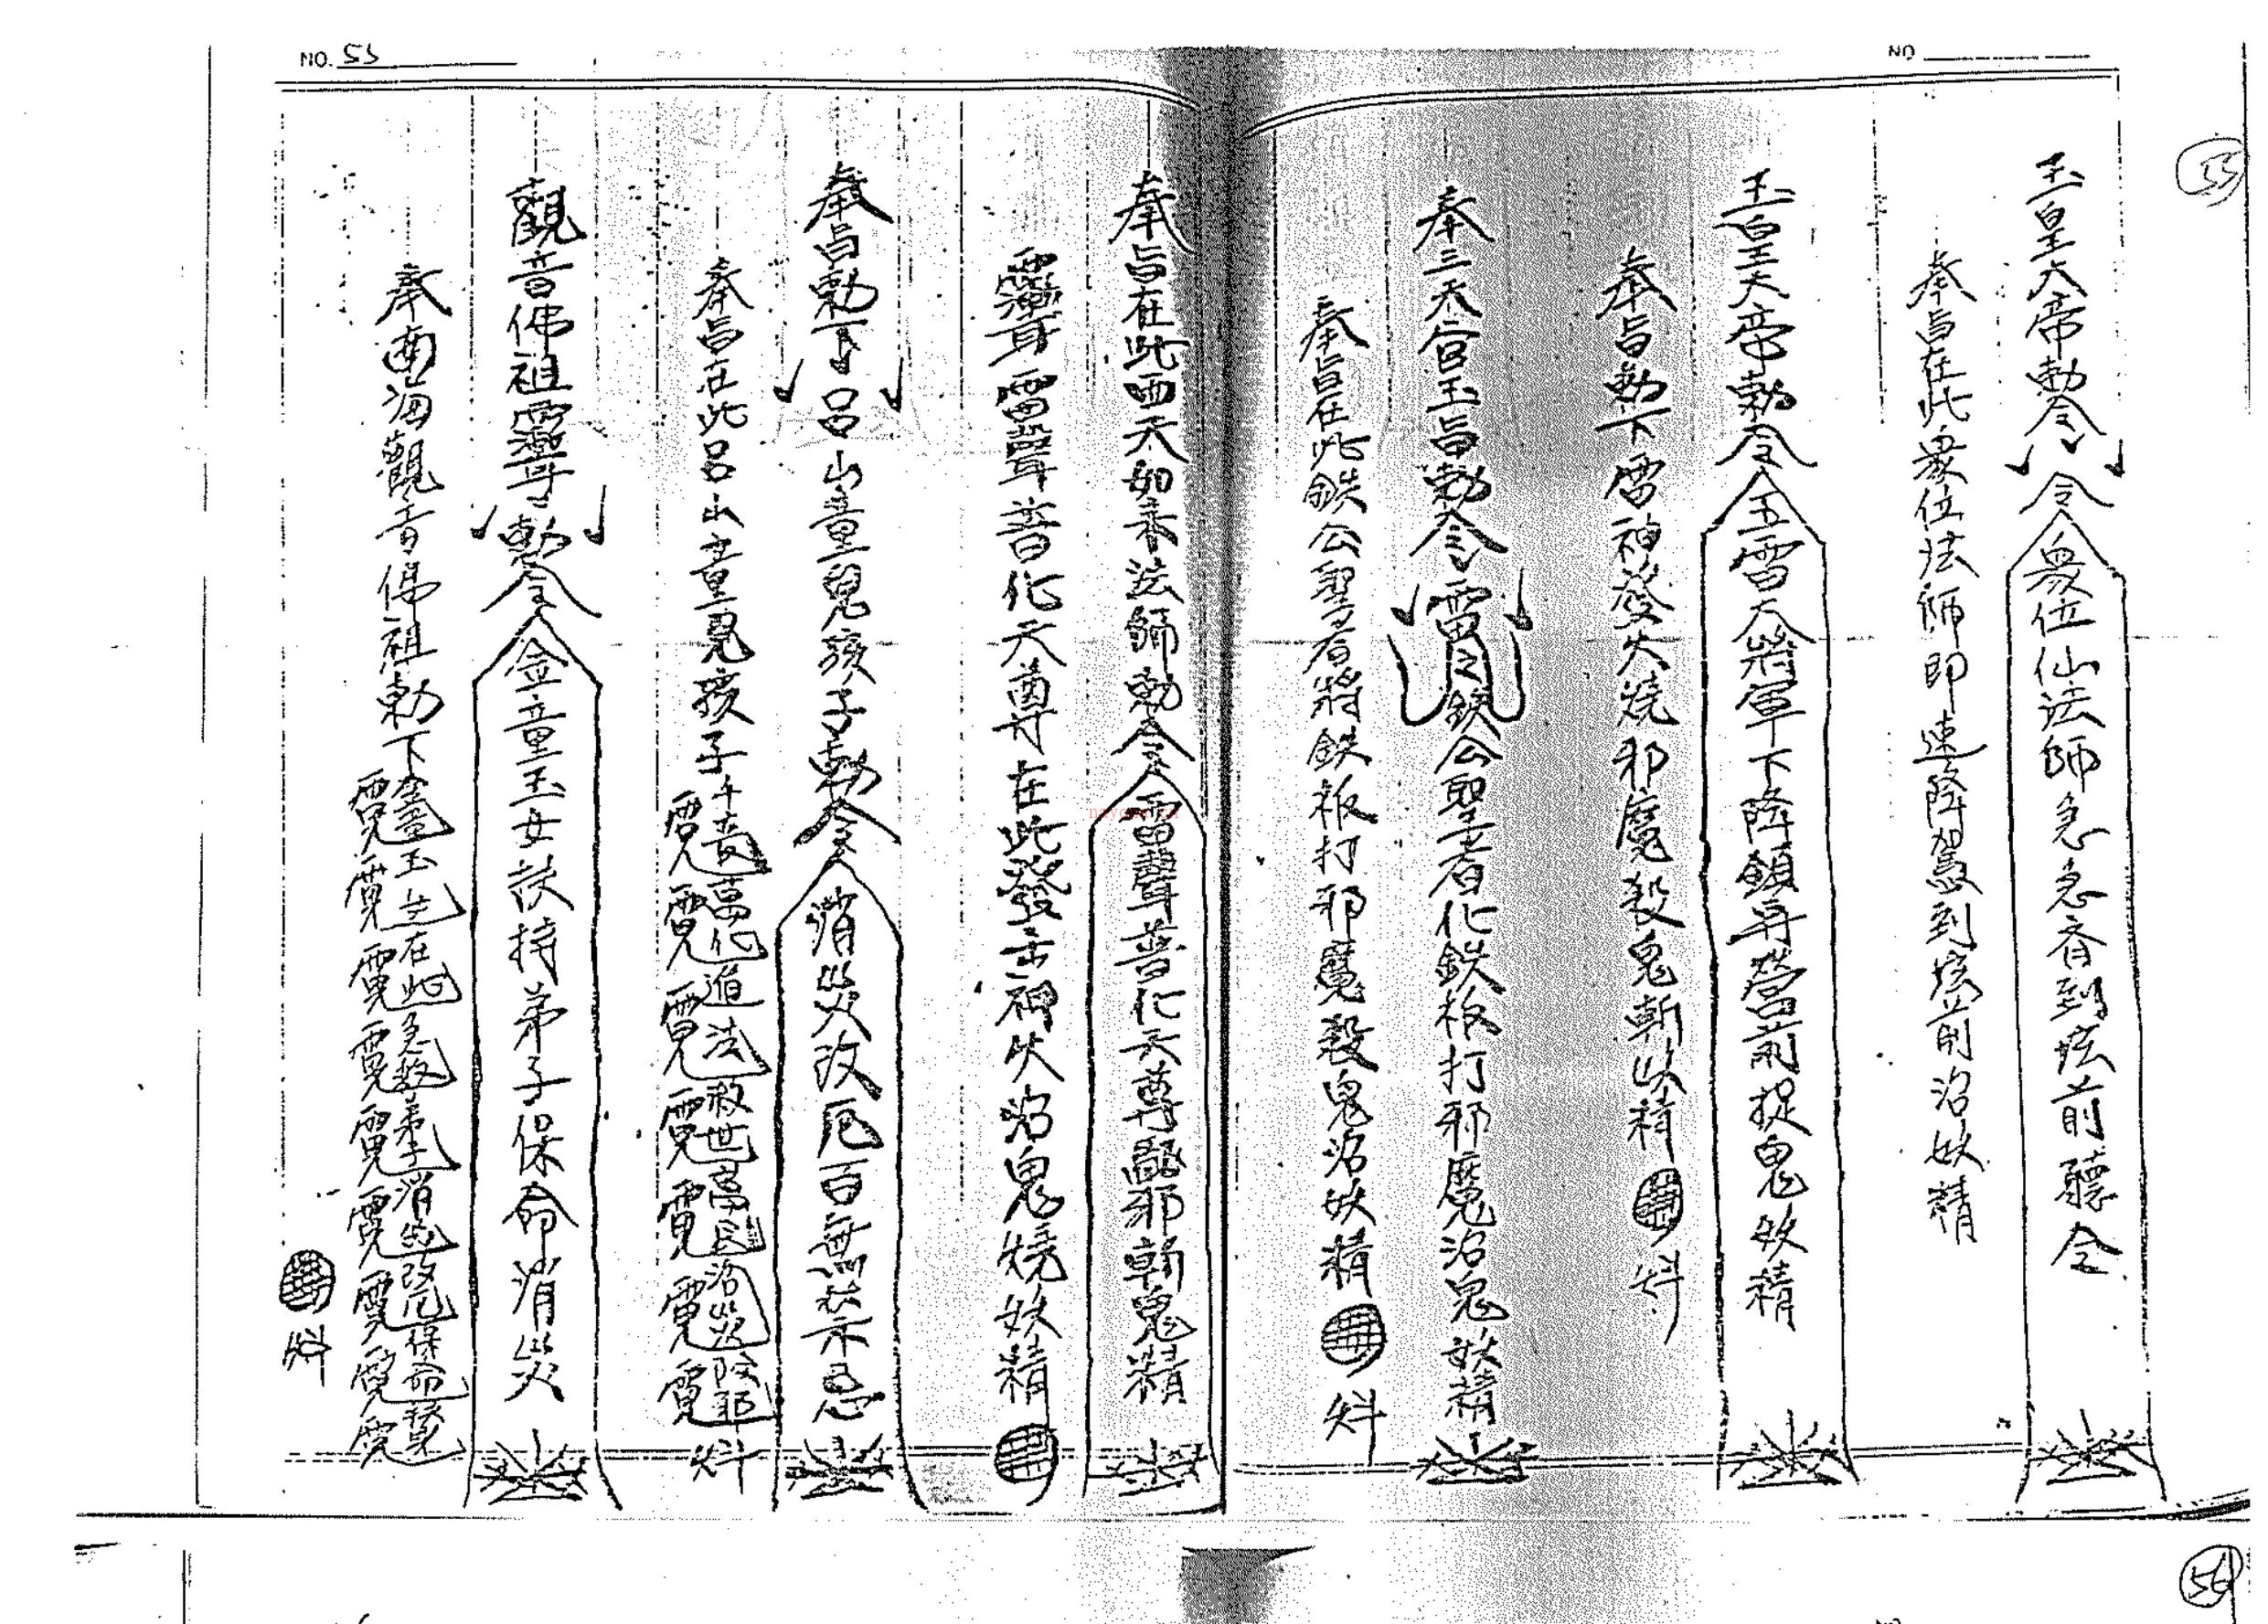 NO. 53
NO
55
玉皇大帝勅令 令 眾位仙法師急急齊到壇前聽令
奉旨在此眾位法師即速降駕到壇前治妖精
玉皇大帝勅令 五雷大將軍下降鎮再營前捉鬼妖精
奉旨勅下雷神發火燒邪魔殺鬼斬妖精
奉三天宮玉旨勅令 鉄公聖者化鉄板打邪魔治鬼妖精
奉旨在此鉄公聖者將鉄板打邪魔殺鬼治妖精
奉旨在此西天如来法師勅令 雷聲普化天尊 邪斬鬼精
雷聲普化天尊在此發 火治鬼燒妖精
奉旨勅下呂山童兒孩子勅令 消災改厄百無禁忌
奉旨在此呂山童兒孩子千變萬化道法救世萬民治災除邪
觀音佛祖靈 勅令 金童玉女扶持弟子保命消災
奉南海觀音佛祖勅下金童玉女在此急救弟子消災改厄保命
nayona.cn
56